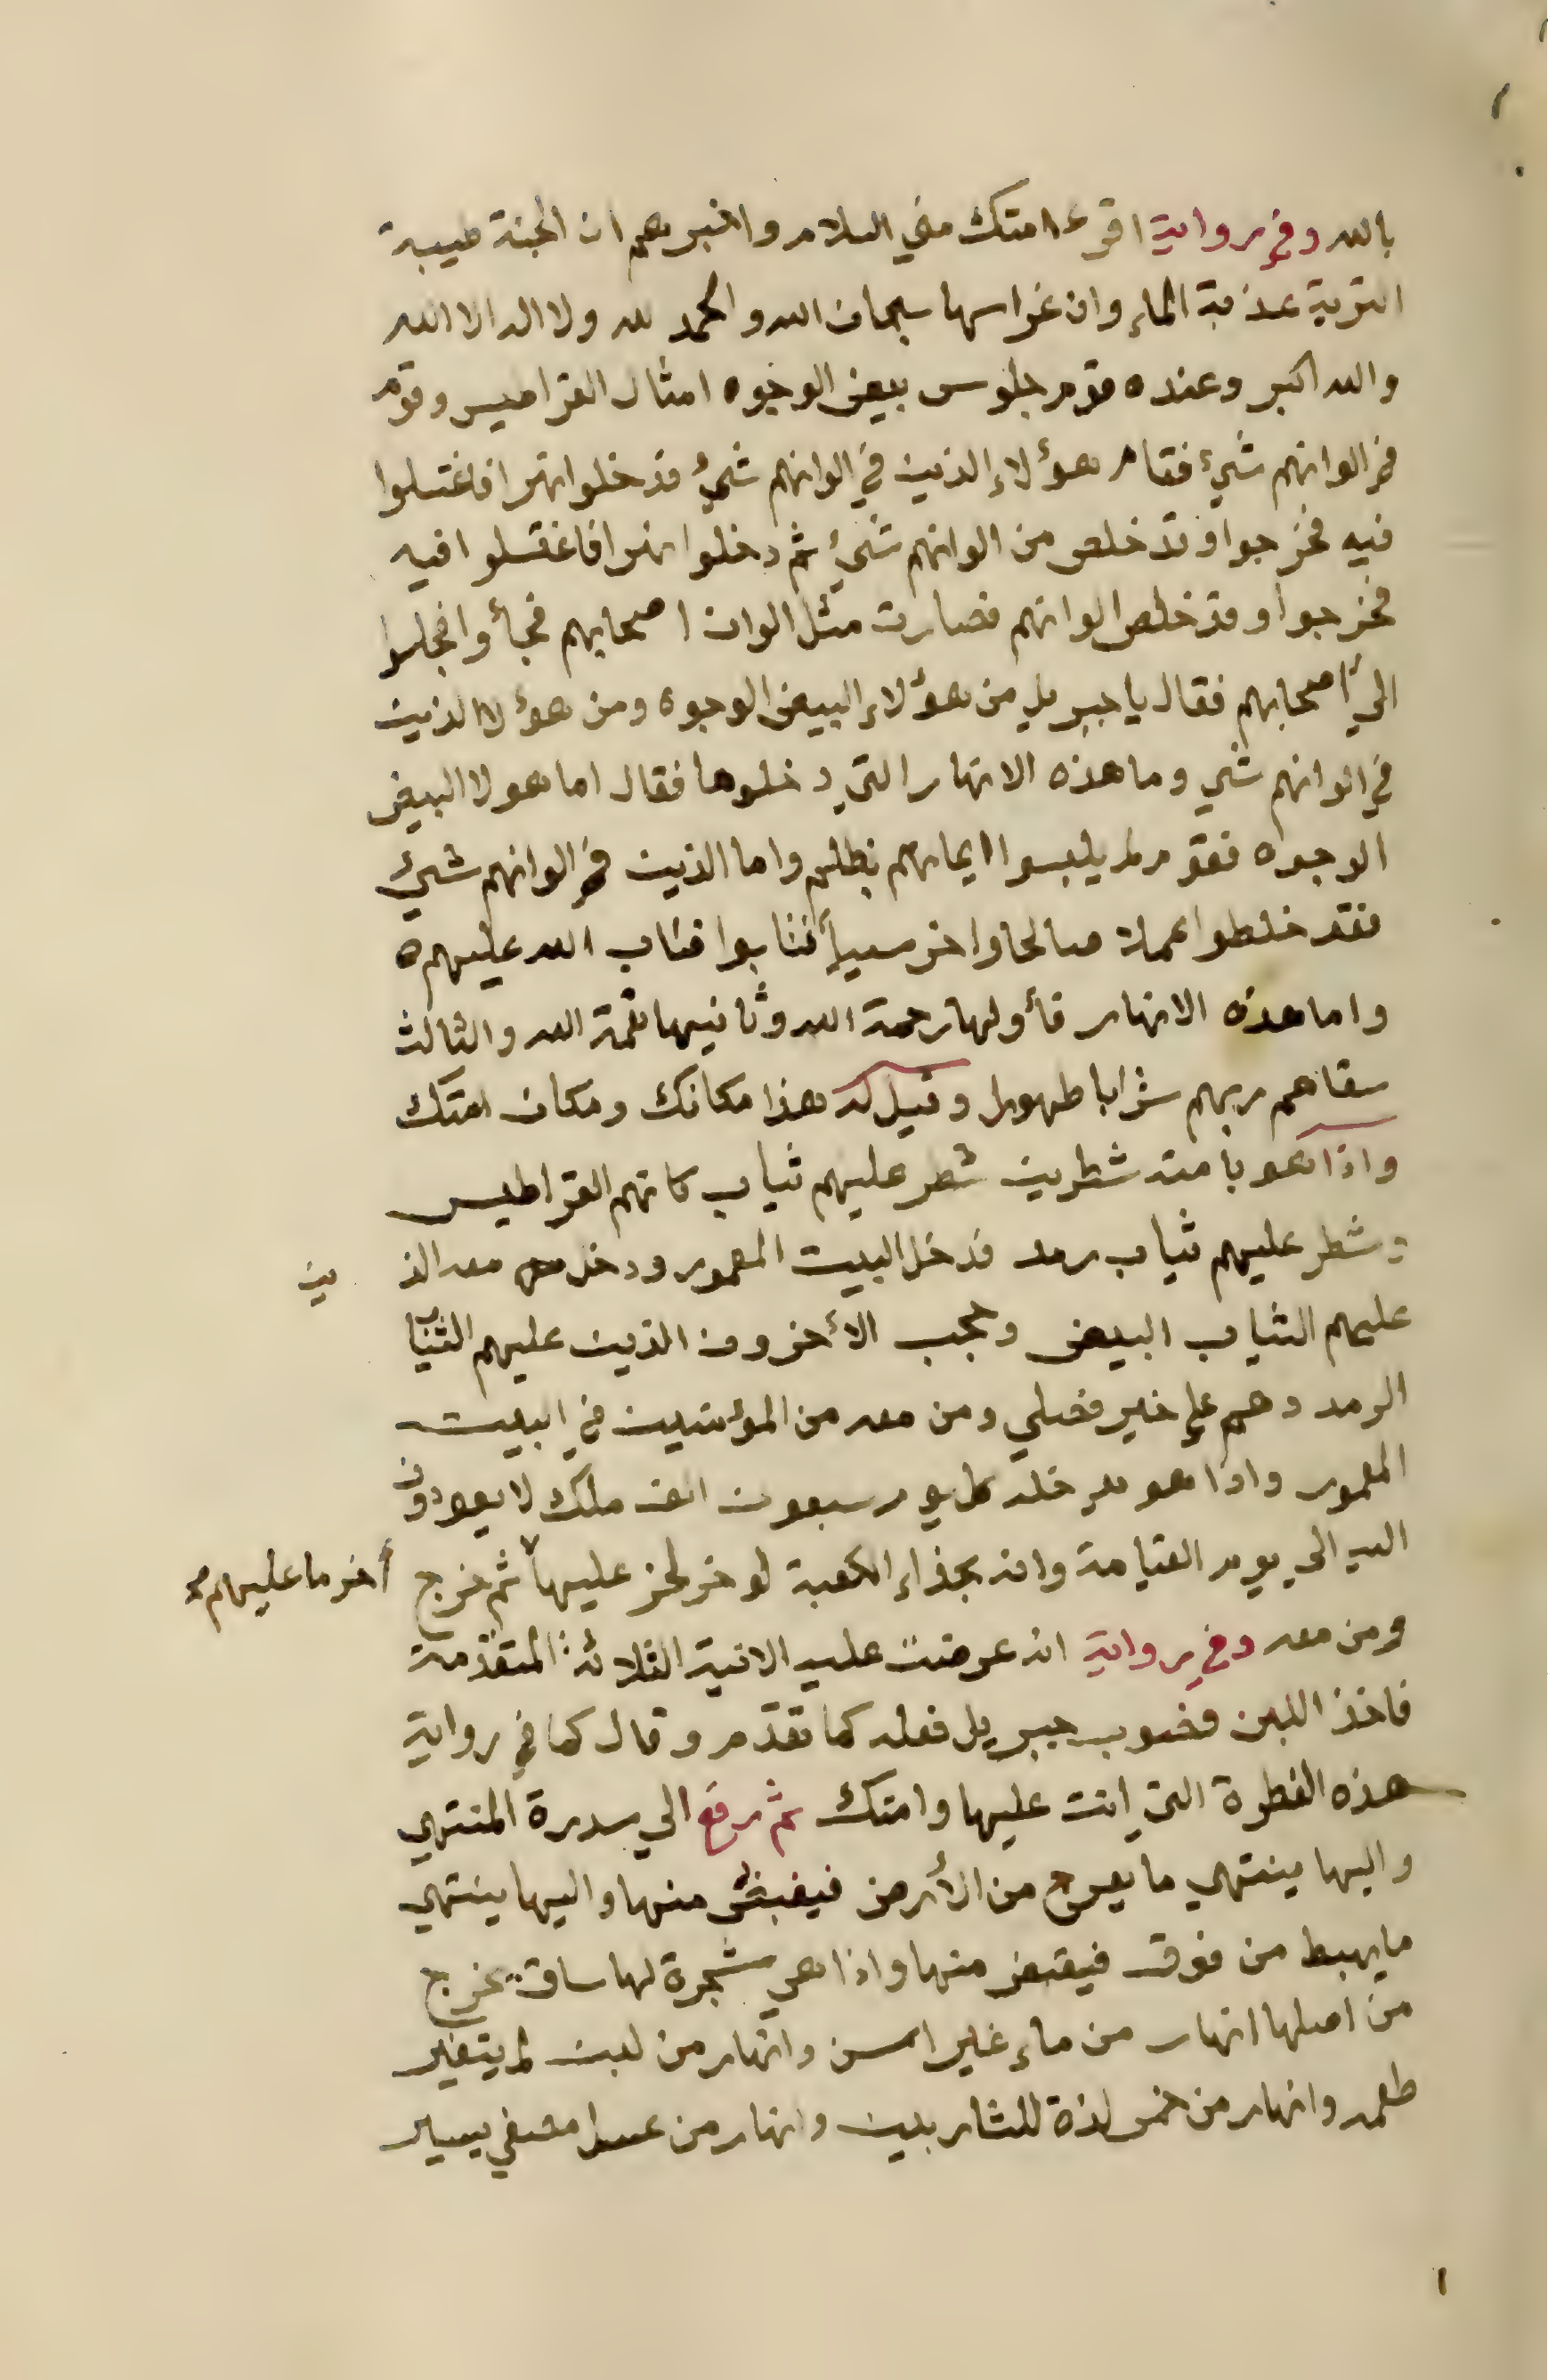 بالله وفي رواية اقرء امتك مني السلام واخبرهم ان الجنة طيبة
التربة عذبة الماء وان غراسها سبحان الله والحمد لله ولا اله الا الله
والله اكبر وعنده قوم جلوس بيض الوجوه امثال القراطيس وقوم
في الوانهم شيء فقام هؤلاء الذين في الوانهم شيء فدخلوا نهرا فاغتسلوا
فيه فخرجوا وقد خلص من الوانهم شيء ثم دخلوا نهرا فاغتسلوا فيه
فخرجوا وقد خلص الوانهم فصارت مثل الوان اصحابهم فجأوا فجلسوا
الي أصحابهم فقال يا جبريل من هؤلاء البيض الوجوه ومن هؤلاء الذين
في الوانهم شي وما هذه الانهار التي دخلوها فقال اما هولا البيض
الوجوه فقوم لم يلبسوا ايمانهم بظلم واما الذين في الوانهم شيء
فقد خلطوا عملا صالحا واخر سيأ فتابوا فتاب الله عليهم ه
واما هذه الانهار فأولها رحمة الله وثانيها نعمة الله والثالث
سقاهم ربهم شرابا طهورا وقيل له هذا مكانك ومكان امتك
واذا هو بامته شطرين شطر عليهم ثياب كانهم القراطيس
وشطر عليهم ثياب رمد فدخل البيت المعمور ودخل معه الذ ين
عليهم الثياب البيض وحجب الأخرون الذين عليهم الثياب
الرمد وهم علي خير فصلي ومن معه من المؤمنين في البيت
المعمور واذا هو يدخله كل يوم سبعون الف ملك لا يعودون
اليه الى يوم القيامة وانه بحذاء الكعبة لو خر لخر عليها ثم خرج
أخر ما عليهم
ومن معه وفي رواية انه عرضت عليه الانية الثلاثة المتقدمة
فاخذ اللبن فصوب جبريل فعله كما تقدم وقال كما في رواية
هذه الفطرة التي انت عليها وامتك ثم رفع الي سدرة المنتهي
واليها ينتهي ما يعرج من الأرض فيقبض منها واليها ينتهي
ما يهبط من فوق فيقبض منها واذا هي شجرة لها ساق يخرج
من اصلها انهار من ماء غير اسن وانهار من لبن لم يتغير
طعمه وانهار من خمر لذة للشاربين وانهار من عسل مصفي يسير